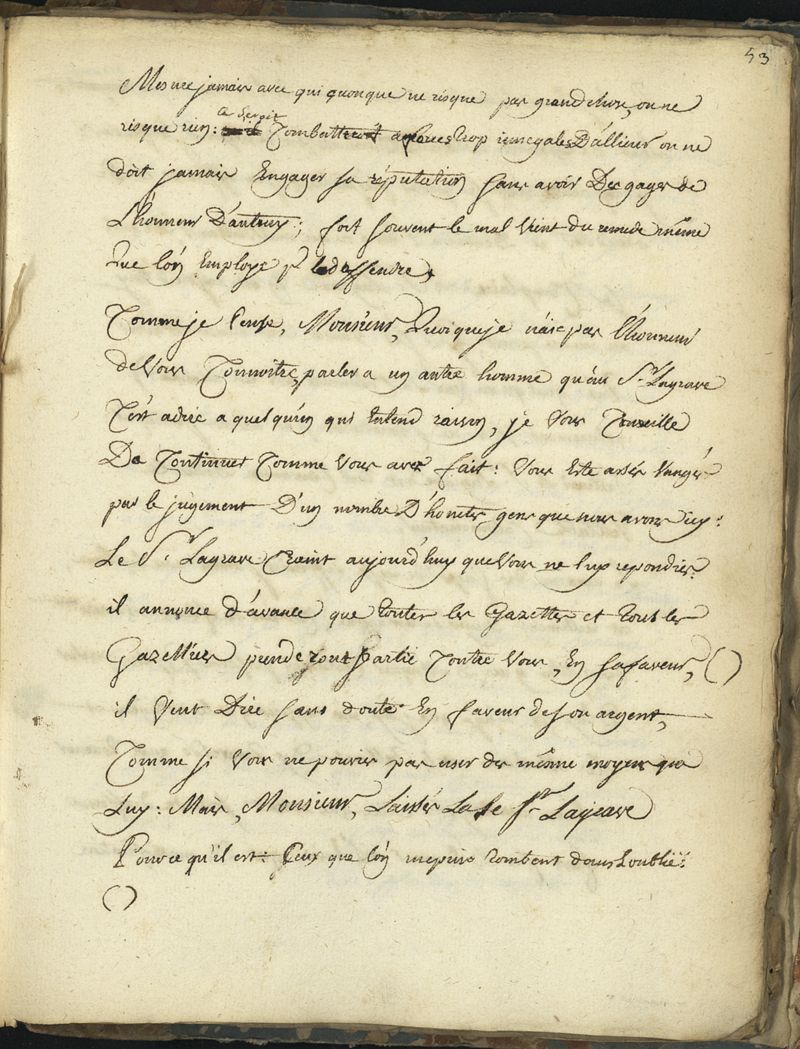 53
Mesure jamais avec qui quonque ne risque pas grand chose, on ne
risque rien: ce seroit Combattre a forces trop innegales D'allieurs on ne
doit jamais Engager sa réputation sans avoir Des gages de
L'honneur D'autruy; fort souvent le mal vient du remede même
Que l'on Employe pr le deffendre,
Comme je pense, Monsieur, Quoique je n'aie pas l'honneur
de Vous Connoitre, parler a un autre homme qu'au Sr. Lagrave
C'est adire a quelqu'un qui Entend raison, je Vous Conseille
De Continuer Comme Vous avez fait: Vous Este assés Vangé
par le jugement D'un nombre D'honnetes gens que nous avons icy:
Le Sr. Lagrave Craint aujourd'huy que Vous ne luy repondiez:
il annonce d'avance que toutes les Gazettes et tous les
Gazettiers prenderont partie Contre Vous, En sa faveur, ()
il Veut Dire sans doute En faveur de son argent,
Comme si Vous ne pouviez pas user des même moyens que
Luy: Mais, Monsieur, Laissés La le Sr. Lagrave
Pour ce qu'il est: Ceux que l'on méprise tombent dans l'oublie:
()